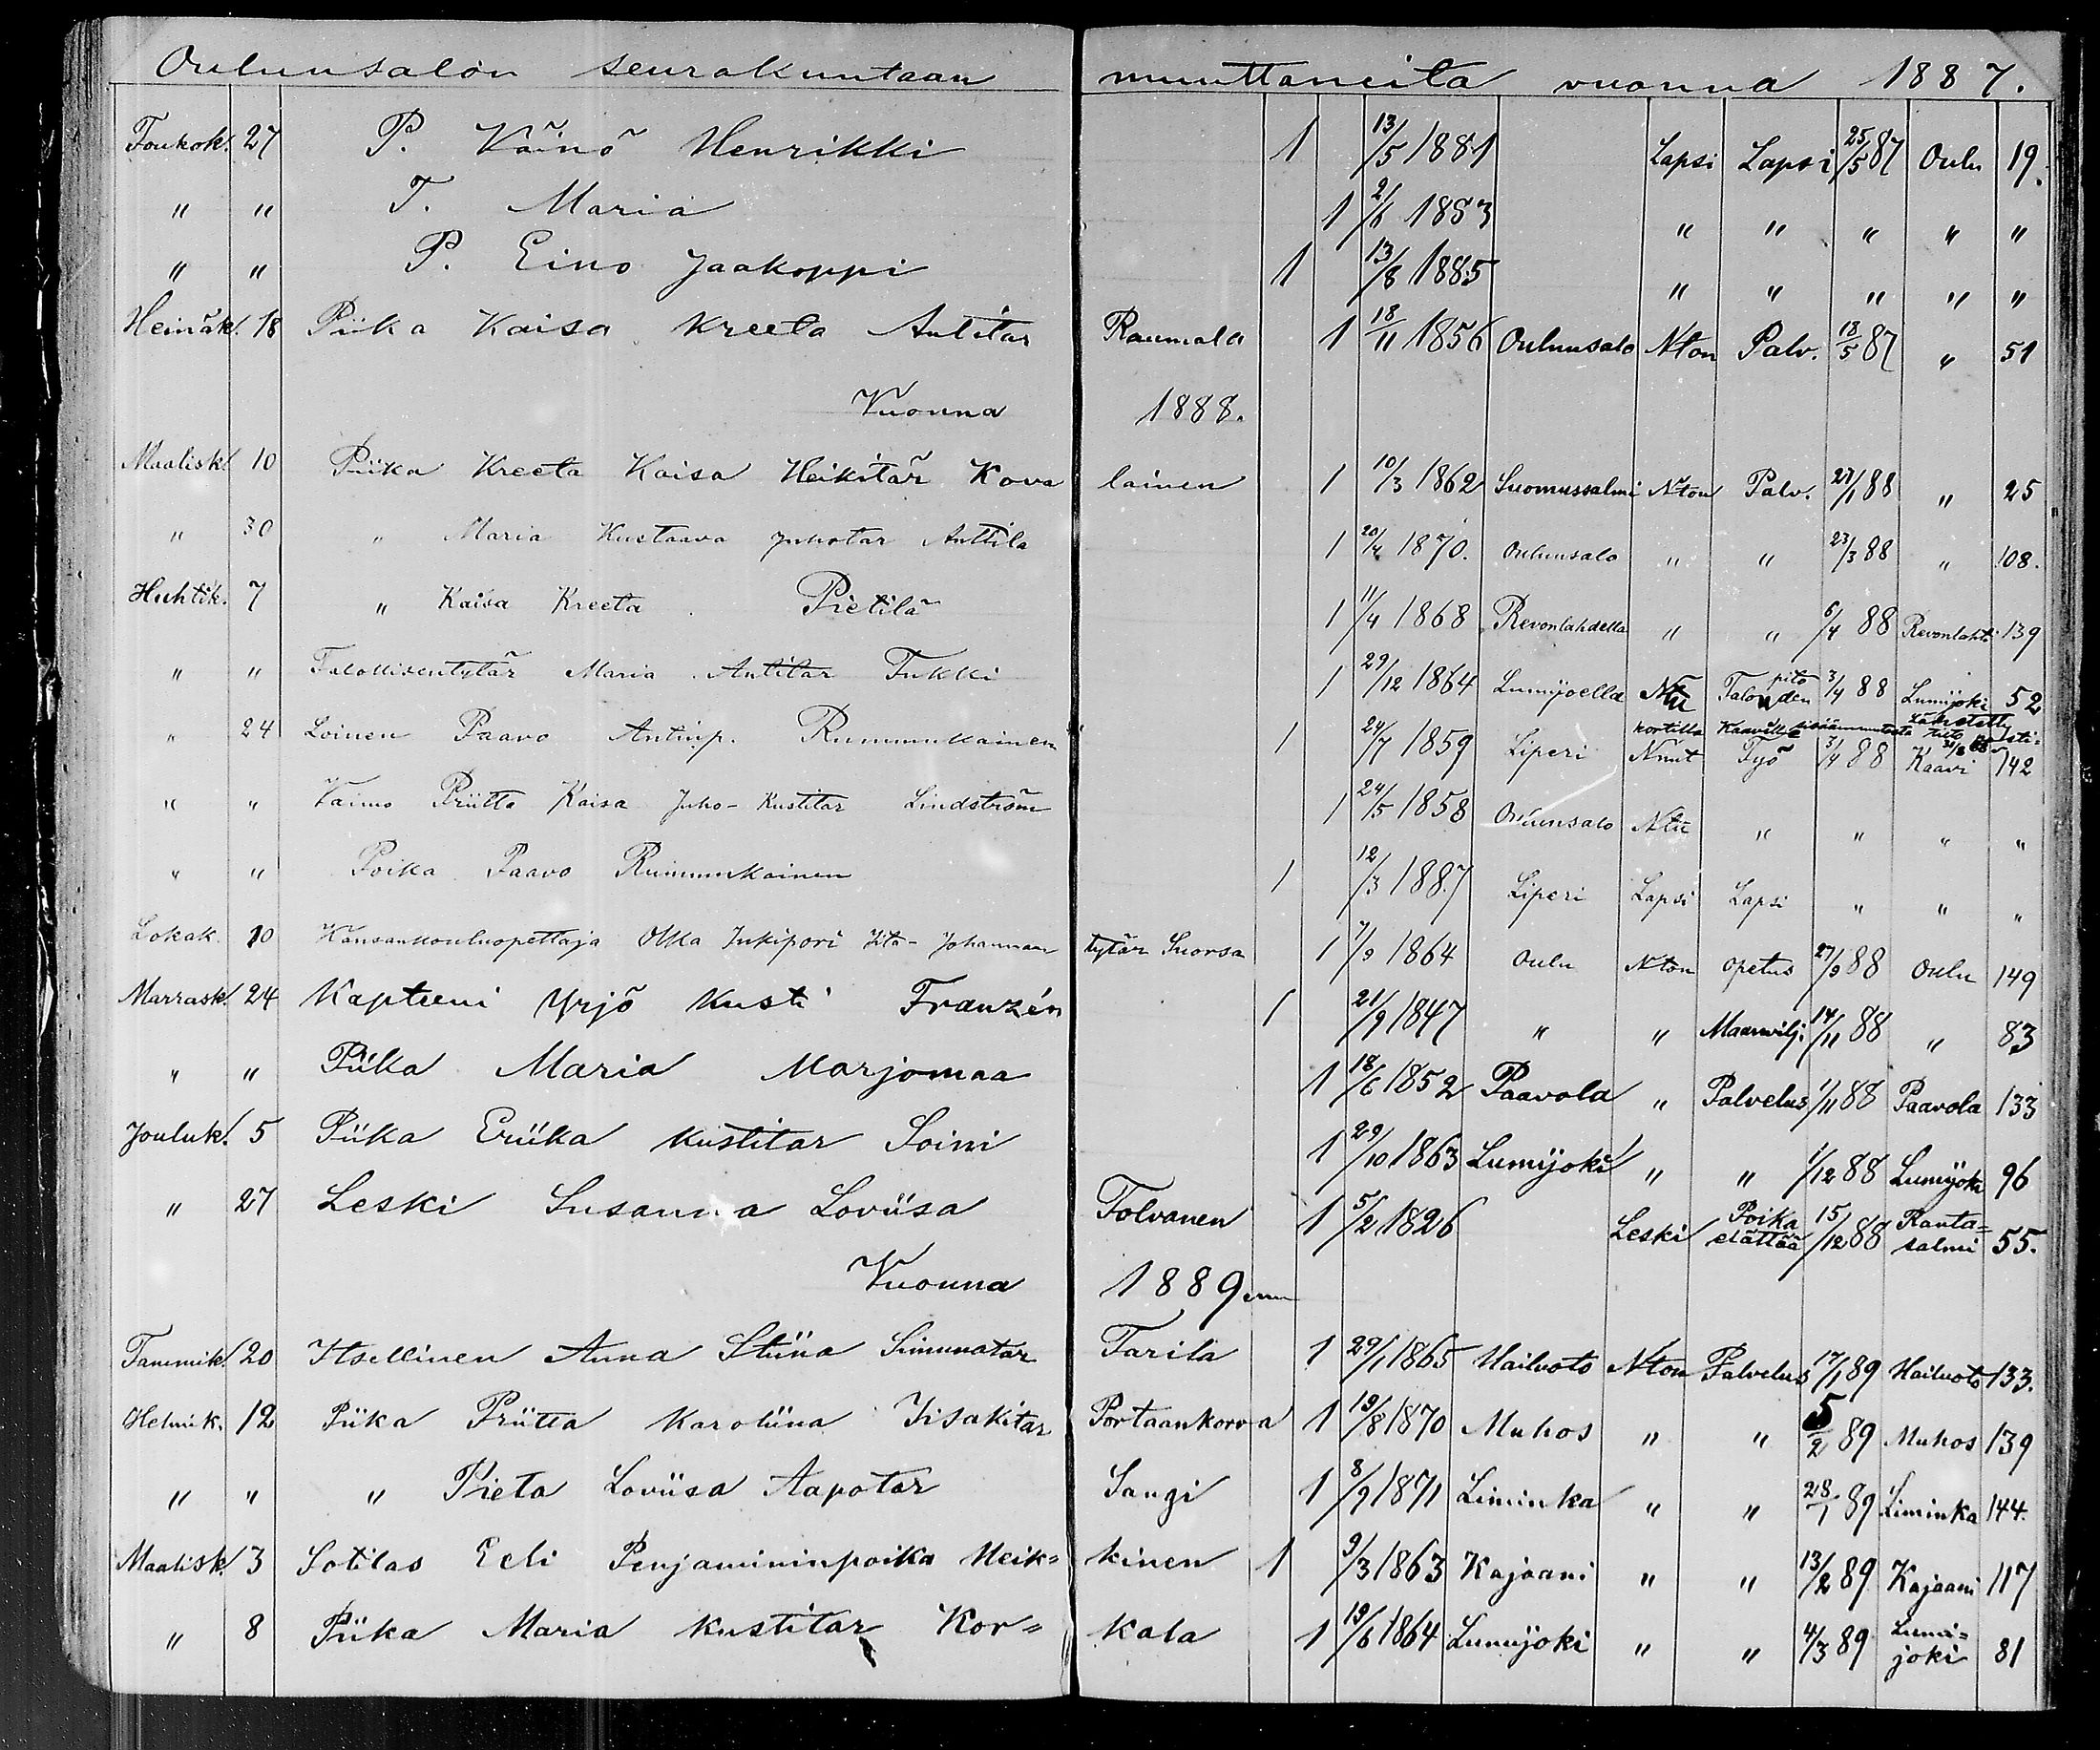 Oulunsalon seurakuntaan muuttaneita vuonna 1887.
Toukok. 27 P. Väinö Henrikki 1 13/5 1881 Lapsi Lapsi 25/5 87 Oulu 19.
" " T. Maria 1 2/6 1883 " " " " "
" " P. Eino Jaakoppi 1 13/8 1885 " " " " "
Heinäk. 18 Piika Kaisa Kreeta Antitar Raumala 1 18/11 1856 Oulunsalo Nton Palv. 18/5 87 " 51
Vuonna 1888.
Maalisk. 10 Piika Kreeta Kaisa Heikitär Kova lainen 1 10/3 1862 Suomussalmi Nton Palv. 27/1 88 " 25
" 30 " Maria Kustaava Juhotar Anttila 1 20/4 1870. Oulunsalo " " 23/3 88 " 108.
Huhtik. 7 " Kaisa Kreeta Pietilä 1 11/4 1868 Revonlahdella " " 6/4 88 Revonlahti 139
" " Talollisentytär Maria Antitar Tukki 1 29/12 1864 Lumijoella Ntu Talon pito den 3/4 88 Lumijoki 52
kortilla Kaavilla sisäänmuutosta tieto Lähetetty 31/8 88
" 24 Loinen Paavo Antinp. Rummukainen 1 24/7 1859 Liperi Nnut Työ 3/4 88 Kaavi 142
" " Vaimo Priitta Kaisa Juho-Kustitar Lindström 1 24/5 1858 Oulunsalo Ntu " " " "
" " Poika Paavo Rummukainen 1 12/3 1887 Liperi Lapsi Lapsi " " "
Lokak. 10 Kansankouluopettaja Olka Inkipori Iita-Johannan tytär Suorsa 1 7/9 1864 Oulu Nton opetus 27/9 88 Oulu 149
Marrask. 24 Kapteeni Yrjö Kusti Franzén 1 21/9 1847 " " Maanvilj. 14/11 88 " 83
" " Piika Maria Marjomaa 1 18/6 1852 Paavola " Palvelus 1/11 88 Paavola 133
Jouluk. 5 Piika Eriika Kustitar Soini 1 29/10 1863 Lumijoki " " 1/12 88 Lumijoki 96
" 27 Leski Susanna Loviisa Tolvanen 1 5/2 1826 Leski Poika elättää 15/12 88 Ranta= salmi 55.
Vuonna 1889
Tammik. 20 Itsellinen Anna Stiina Simunatar Tarila 1 29/1 1865 Hailuoto Nton Palvelus 17/1 89 Hailuoto 133.
Helmik. 12 Piika Priitta Karoliina Iisakitar Portaankorva 1 19/8 1870 Muhos " " 5/2 89 Muhos 139
" " " Pieta Loviisa Aapotar Sangi 1 8/9 1871 Liminka " " 28/1 89 Liminka 144.
Maalisk. 3 Sotilas Eeli Penjamininpoika Heik= kinen 1 9/3 1863 Kajaani " " 13/2 89 Kajaani 117
" 8 Piika Maria Kustitar Kor= kala 1 19/6 1864 Lumijoki " " 4/3 89 Lumi= joki 81